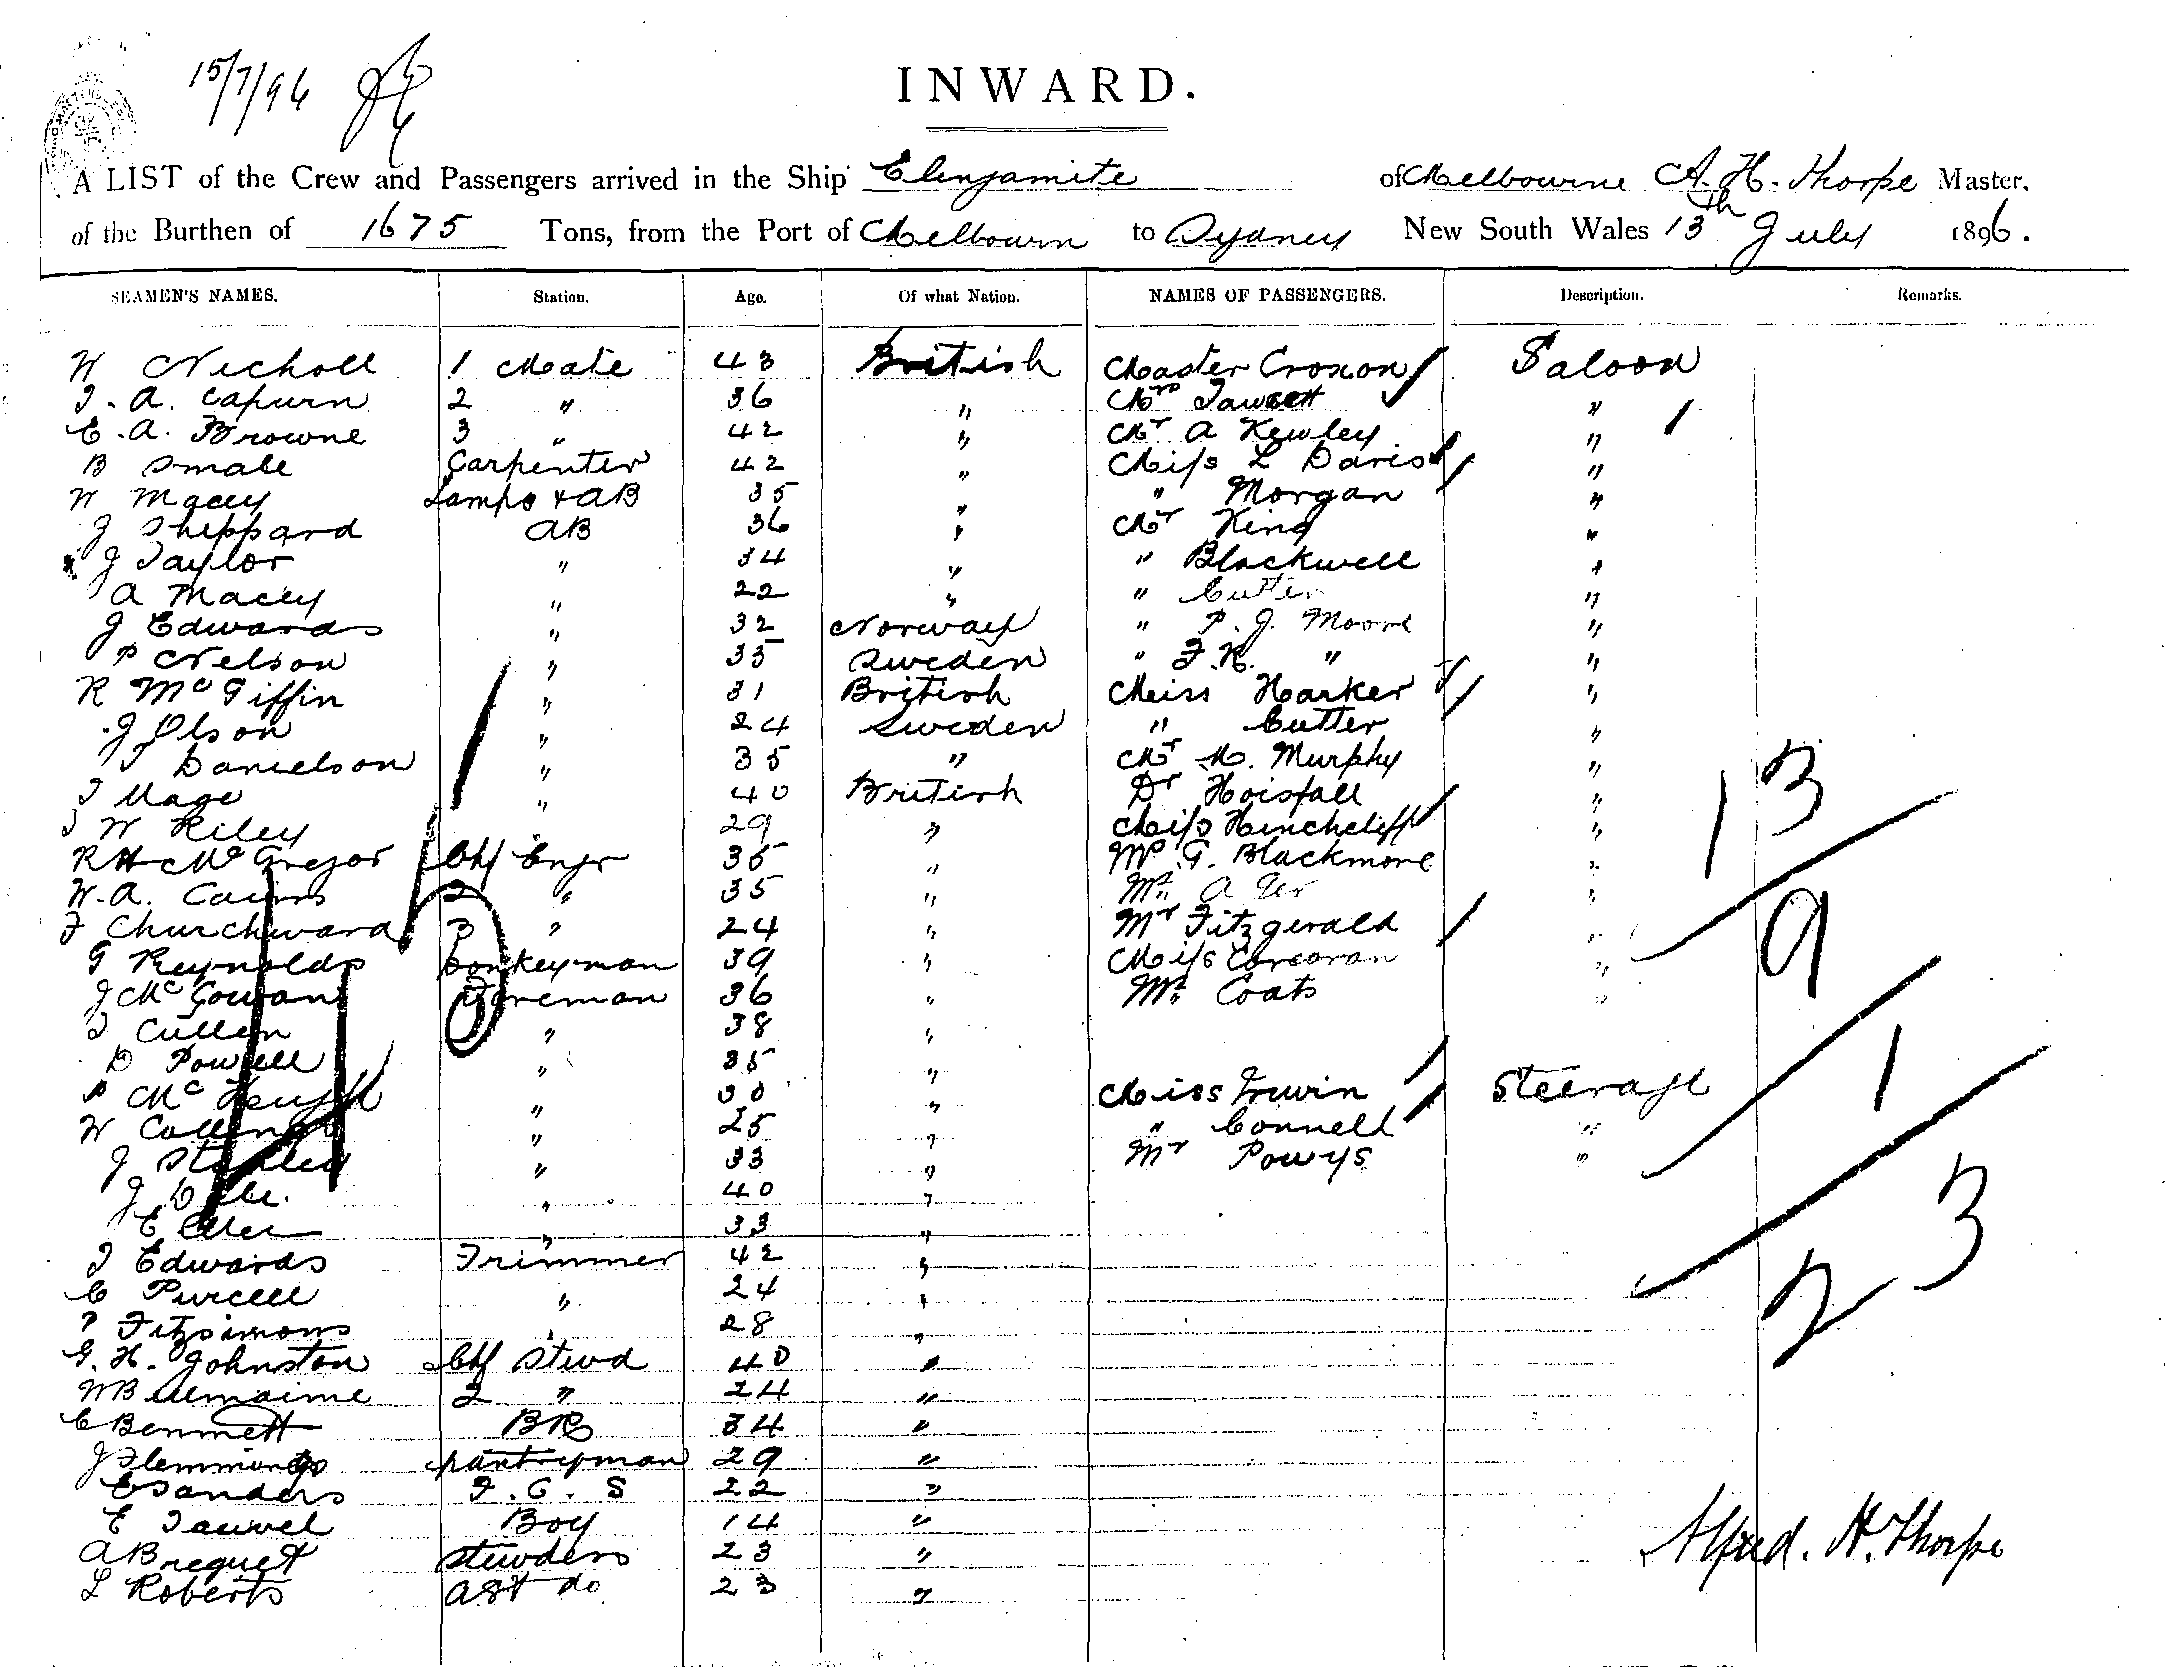 15/7/96
INWARD.
A LIST of the Crew and Passengers arrived in the Ship Elingamite of Melbourne A. H. Thorpe Master,
of the Burthen of 1675 Tons, from the Port of Melbourn to Sydney New South Wales 13th July 1896.
SEAMEN'S NAMES. Station. Age. Of what Nation. NAMES OF PASSENGERS. Description. Remarks.
W Nicholl 1 Mate 43 British Master Croxon Saloon
J. A. Capurn 2 " 36 " Mrs Fawcett "
E. A. Browne 3 " 42 " Mr A Kewley "
B Smale Carpenter 42 " Miss L Davis "
W Macey Lamps & AB 35 " " Morgan "
J Sheppard AB 36 " Mr King "
J Taylor " 34 " " Blackwell "
A Macey " 22 " " Cutter "
J Edwards " 32 Norway " P. J. Moore "
P Nelson " 35 Sweden " F. K. " "
R McGiffin " 31 British Miss Harker "
J Olson " 24 Sweden " Cutter "
J Danielson " 35 " Mr M. Murphy "
" 40 British Dr "
W Riley " 29 " Miss Hinchcliff "
R H McGregor Chf Engr 35 " Mr G. Blackmore "
W. A. Cairns 2 " 35 " Mr A "
F Churchward 3 " 24 " Mr Fitzgerald "
G Reynolds Donkeyman 39 " Miss Corcoran "
J McGowan Fireman 36 " Mr Coats "
J Cullen " 38 "
D Powell " 35 "
P McHugh " 30 " Miss Irwin Steerage
W Collings " 25 " " Connell "
J " 33 " Mr Powys "
J " 40 "
E " 33 "
J Edwards Trimmer 42 "
C Purcell " 24 "
P Fitzsimons " 28 "
G. H. Johnston Chf Stwd 40 "
W 2 " 24 "
E Bennett BR 34 "
J Pantryman 29 "
E Sanders F. C. S 22 "
E Boy 14 "
A Breguet Stewdess 23 "
L Roberts Ast do 23 "
13
9
1
23
Alfred. H. Thorpe